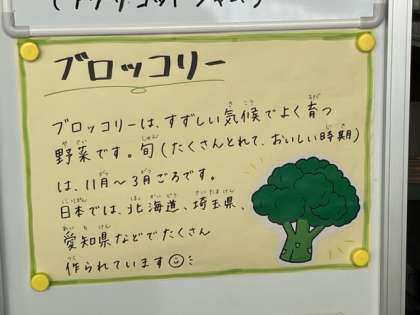 ブロッコリー
ブロッコリーは、すずしい気候でよく育つ
野菜です。旬(たくさんとれて、おいしい時期)
は、11月～3月ごろです。
日本では、北海道、埼玉県、
愛知県などでたくさん
作られています